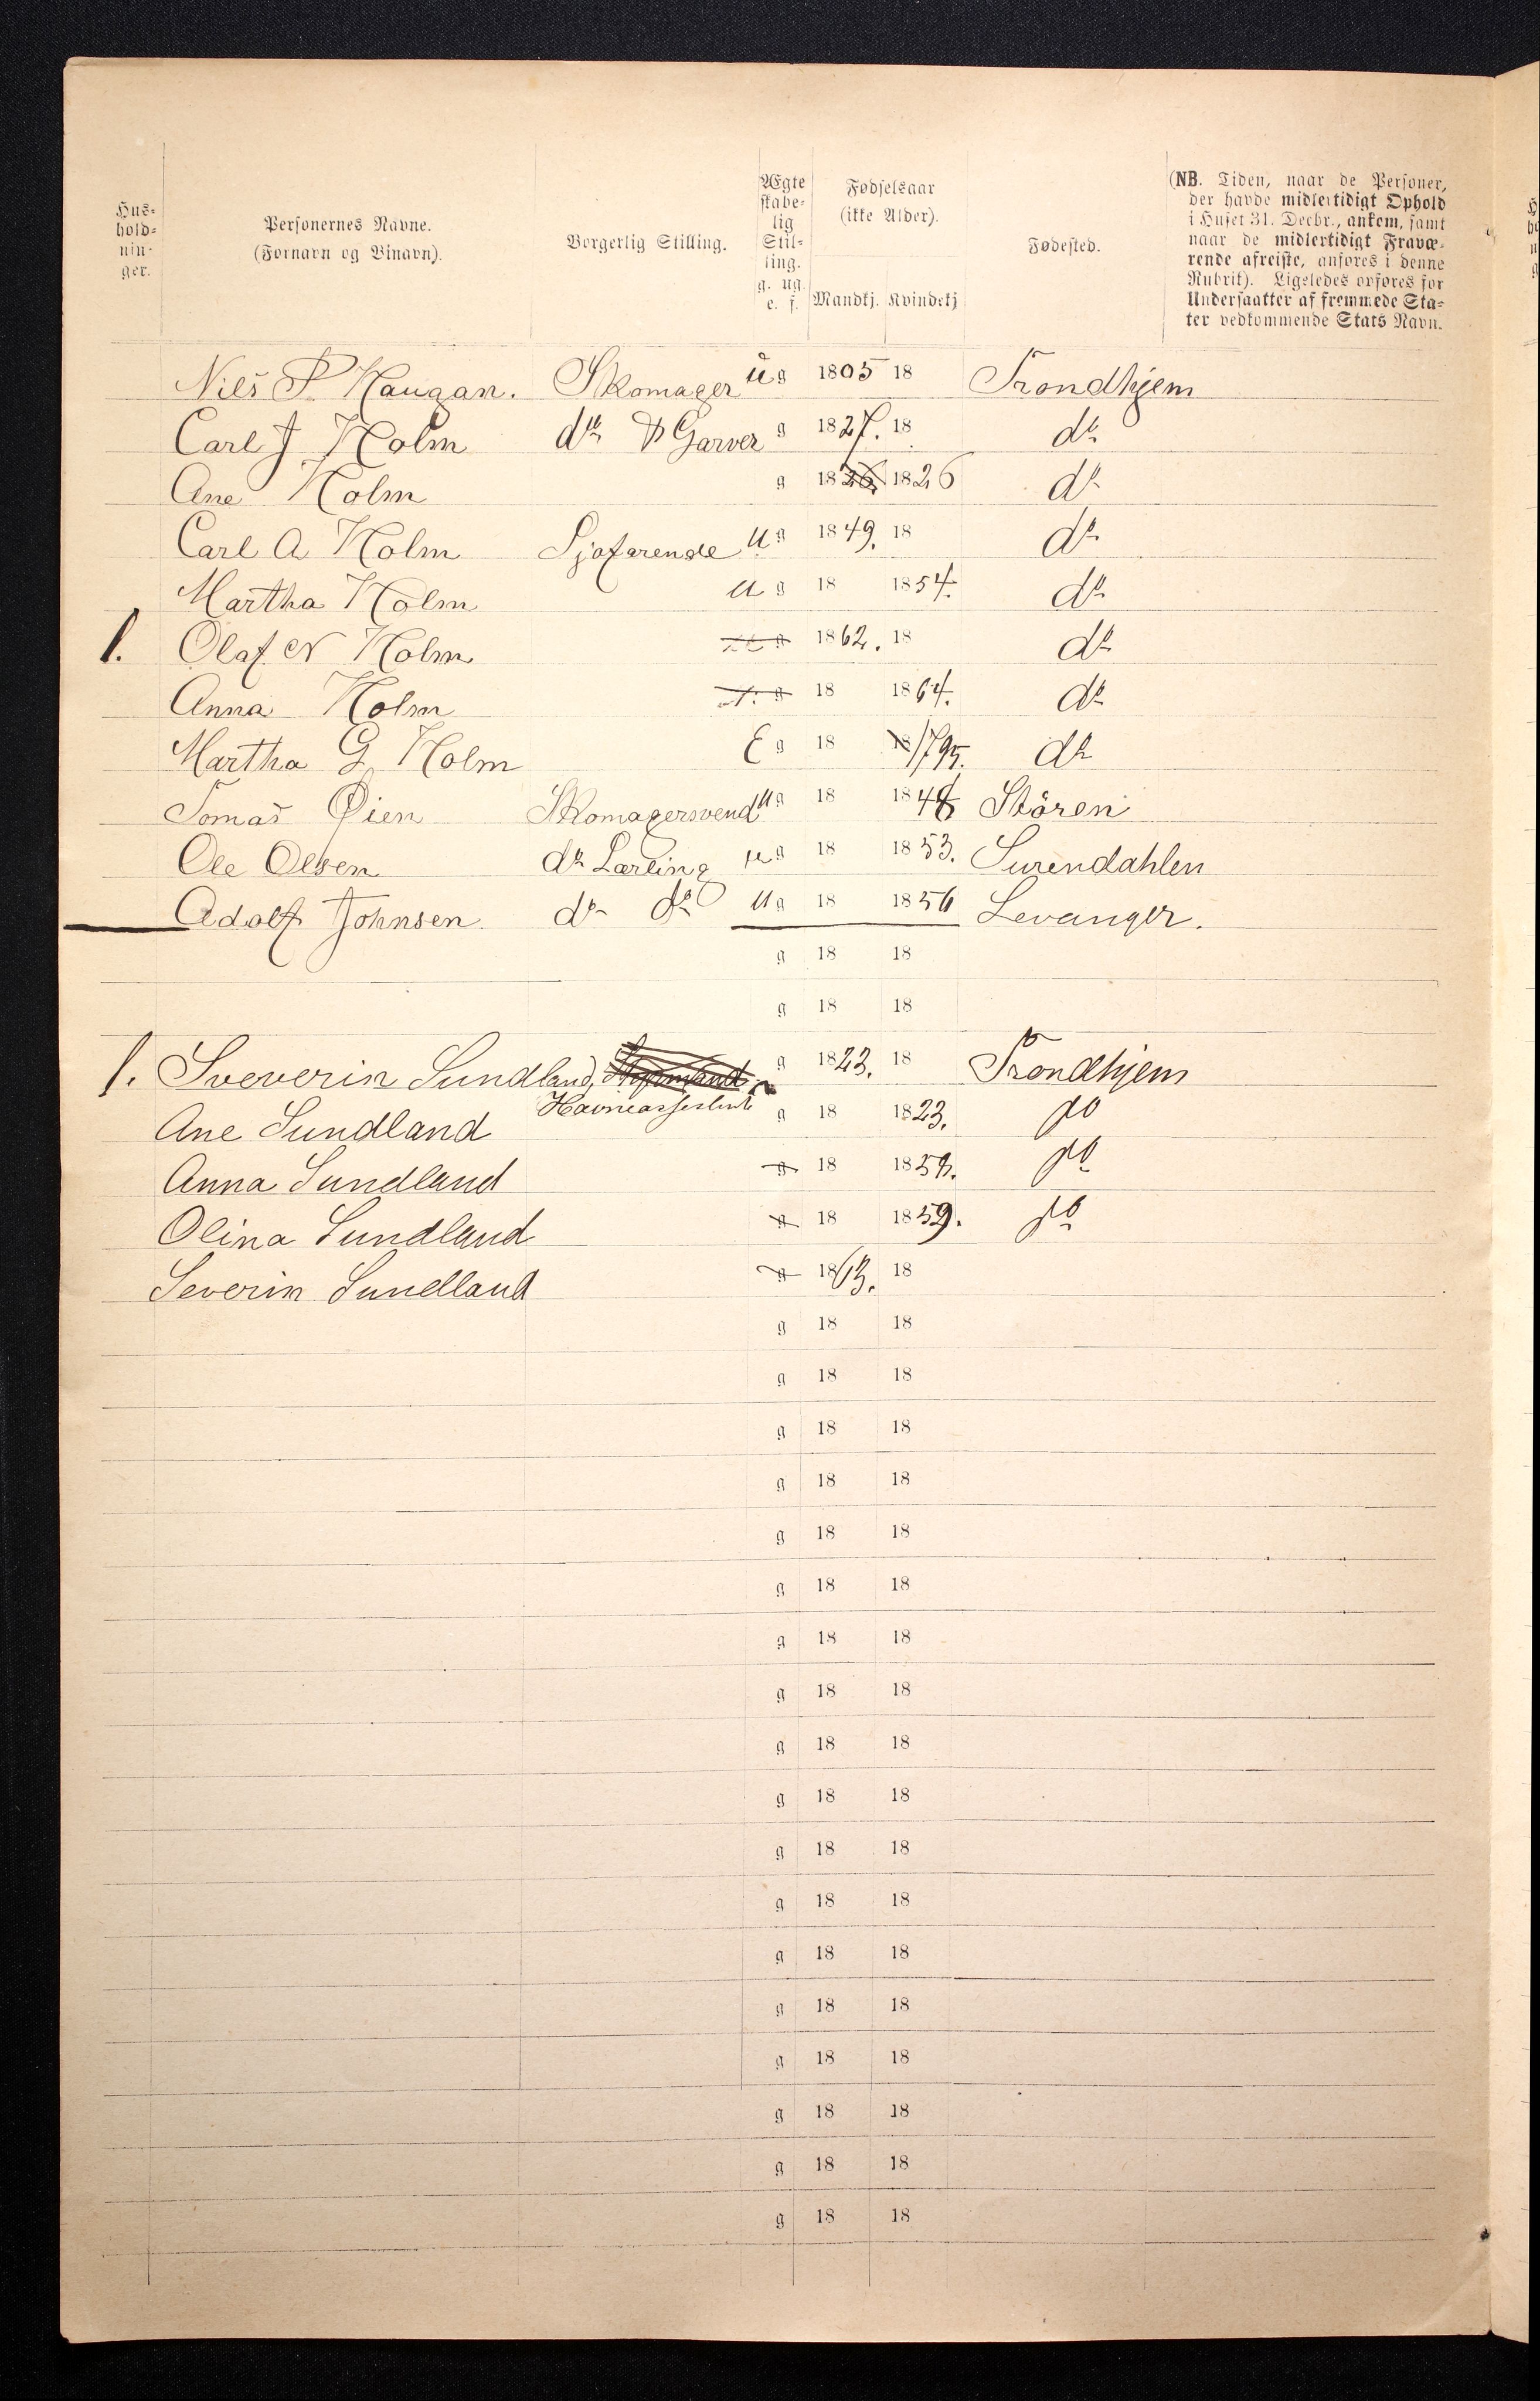 Hus-
hold-
nin-
ger.
Personernes Navne.
(Fornavn og Binavn).
Borgerlig Stilling.
Ægte
skabe-
lig
Stil-
ling.
g. ug.
e. f.
Fødselsaar
(ikke Alder).
Mandkj. Kvindekj
Fødested.
(NB. Tiden, naar de Personer,
der havde midlertidigt Ophold
i Huset 31. Decbr., ankom, samt
naar de midlertidigt Fravæ-
rende afreiste, anføres i denne
Rubrik). Ligeledes opføres for
Undersaatter af fremmede Sta-
ter vedkommende Stats Navn.
Niels P. Haugan. Skomager u g 1805 18 Trondhjem
Carl J Holm do & Garver g 1827. 18 do
Ane Holm g 1826 1826 do
Carl A Holm Sjøfarende u g 1849. 18 do
Martha Holm u g 18 1854. do
1. Olaf N Holm g 1862. 18 do
Anna Holm g 18 1864. do
Martha G. Holm E g 18 18/795. do
Tomas Øien Skomagersvend u g 18 1848 Stören
Ole Olsen do Lærling u g 18 1853. Surendahlen
Adolf Johnsen do do u g 18 1856 Levanger.
g 18 18
g 18 18
1. Sveverin Sundland, Styrmand g 1823. 18 Trondhjem
Havneassistent
Ane Sundland g 18 1823. do
Anna Sundland g 18 18 do
Olina Sundland g 18 1859. do
Severin Sundland g 1863. 18
g 18 18
g 18 18
g 18 18
g 18 18
g 18 18
g 18 18
g 18 18
g 18 18
g 18 18
g 18 18
g 18 18
g 18 18
g 18 18
g 18 18
g 18 18
g 18 18
g 18 18
g 18 18